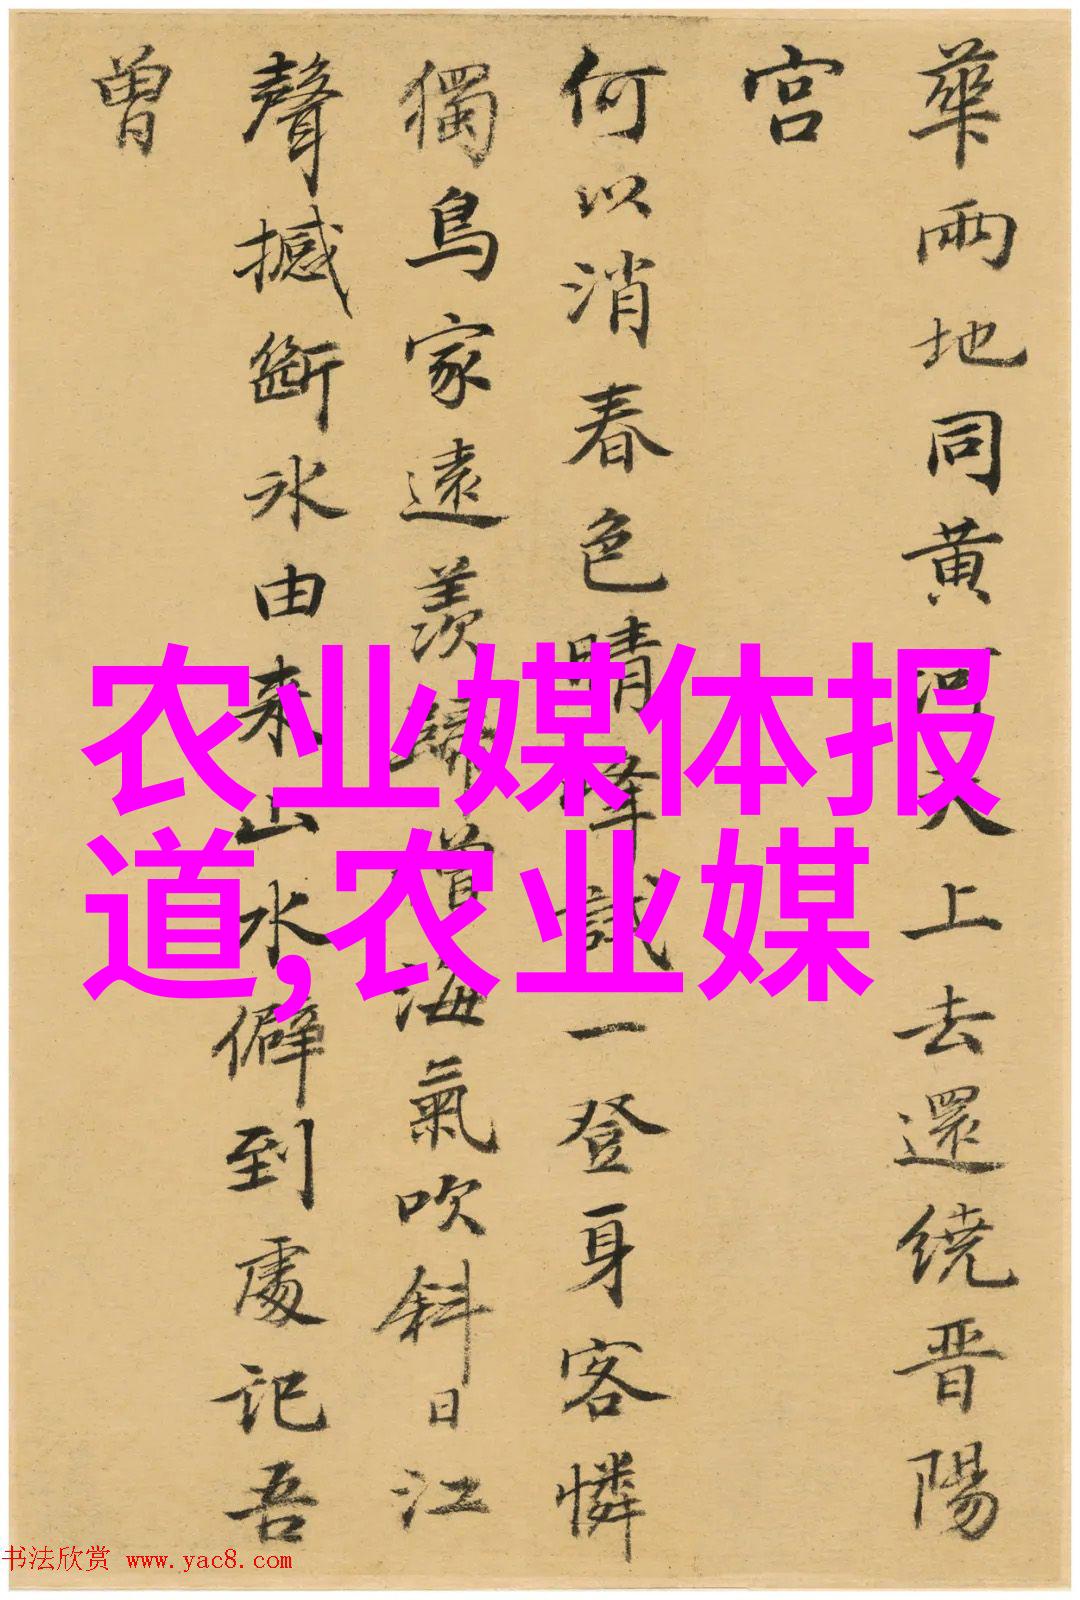 華兩地同黄河天上去還繞晋陽
宫
何以消春色晴峰試一登身客憐
獨鳥家遠羨歸僧海氣吹斜日江
聲撼斷冰由来山水僻到處記吾
曾
农业媒体报
道,农业媒
书法欣赏 www.yac8.com